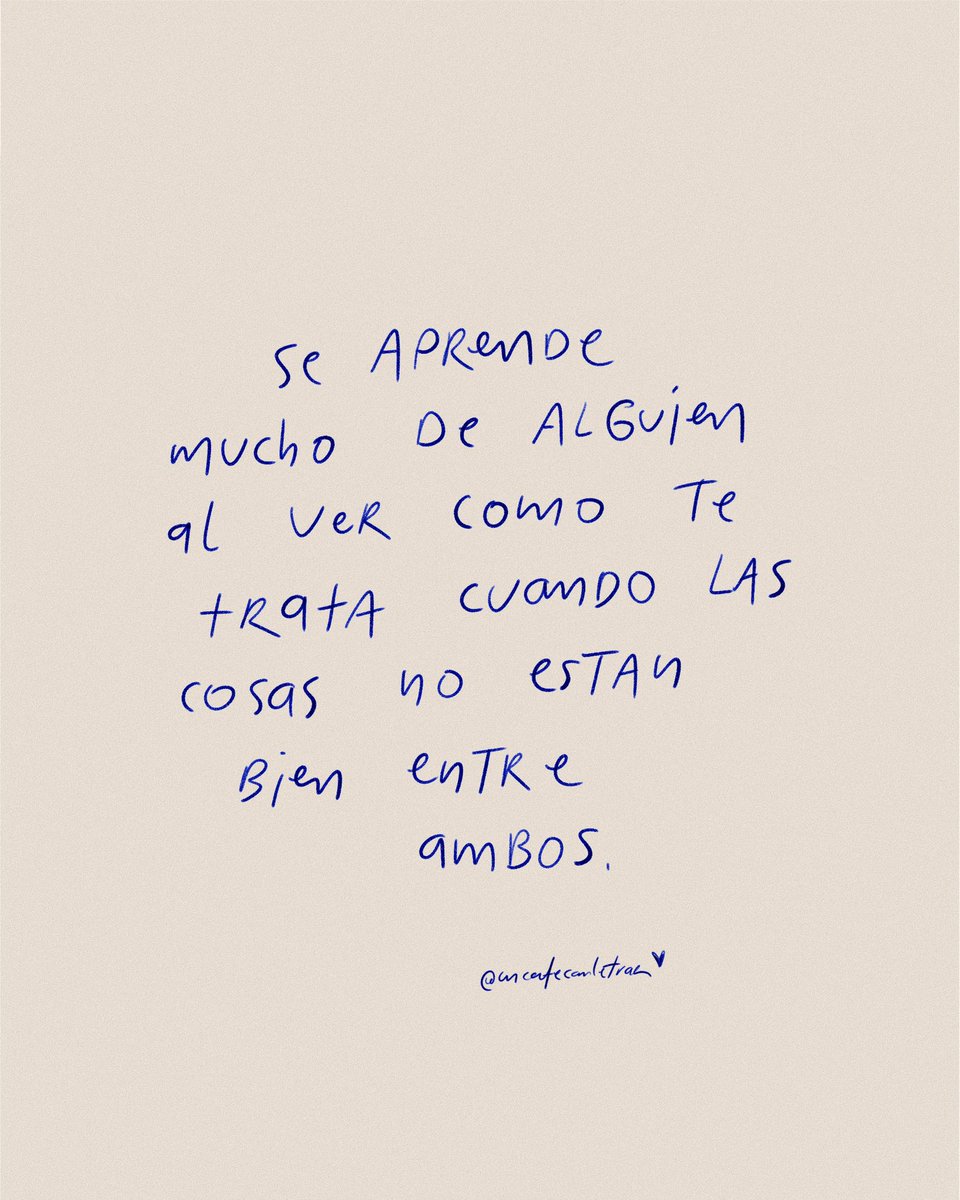 Se APRENDE
mucho De ALGUien
al veR como Te
tRatA cuanDO LAS
cosas no esTAn
Bien enTRe
amBOS.
@uncafeconletras